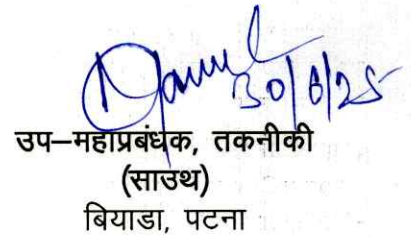 30/6/25
उप–महाप्रबंधक, तकनीकी
(साउथ)
बियाडा, पटना